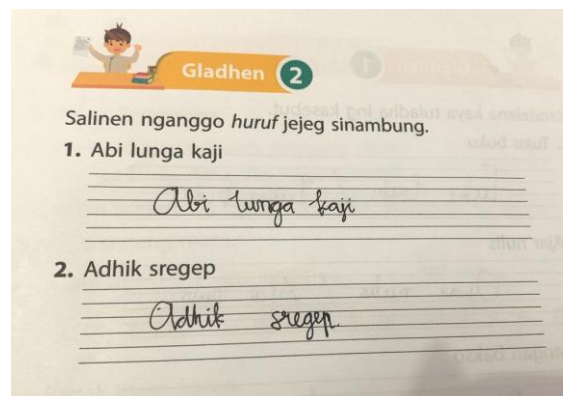 Gladhen 2
Salinen nganggo huruf jejeg sinambung.
1. Abi lunga kaji
Abi lunga kaji
2. Adhik sregep
Adhik sregep.